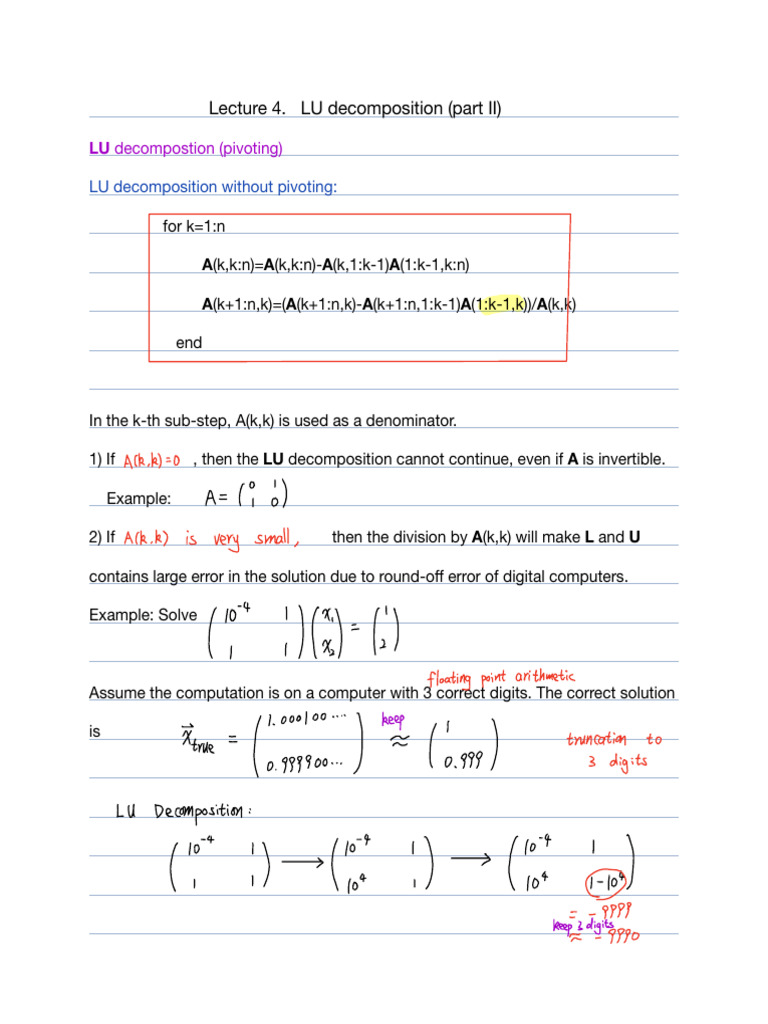 Lecture 4.   LU decomposition (part II)
LU decompostion (pivoting)
LU decomposition without pivoting:
for k=1:n
A(k,k:n)=A(k,k:n)-A(k,1:k-1)A(1:k-1,k:n)
A(k+1:n,k)=(A(k+1:n,k)-A(k+1:n,1:k-1)A(1:k-1,k))/A(k,k)
end
In the k-th sub-step, A(k,k) is used as a denominator.
1) If A(k,k)=0 , then the LU decomposition cannot continue, even if A is invertible.
Example: A = ( 0 1
1 0 )
2) If A(k,k) is very small, then the division by A(k,k) will make L and U
contains large error in the solution due to round-off error of digital computers.
Example: Solve ( 10⁻⁴ 1 ) ( x₁ ) = ( 1 )
( 1 1 ) ( x₂ ) ( 2 )
floating point arithmetic
Assume the computation is on a computer with 3 correct digits. The correct solution
is x⃗true = ( 1.000100.... ) keep ≈ ( 1 )
( 0.999900... ) ( 0.999 )
truncation to
3 digits
LU Decomposition:
( 10⁻⁴ 1 ) → ( 10⁻⁴ 1 ) → ( 10⁻⁴ 1 )
( 1 1 ) ( 10⁴ 1 ) ( 10⁴ 1-10⁴ )
= -9999
keep 3 digits
≈ -9990